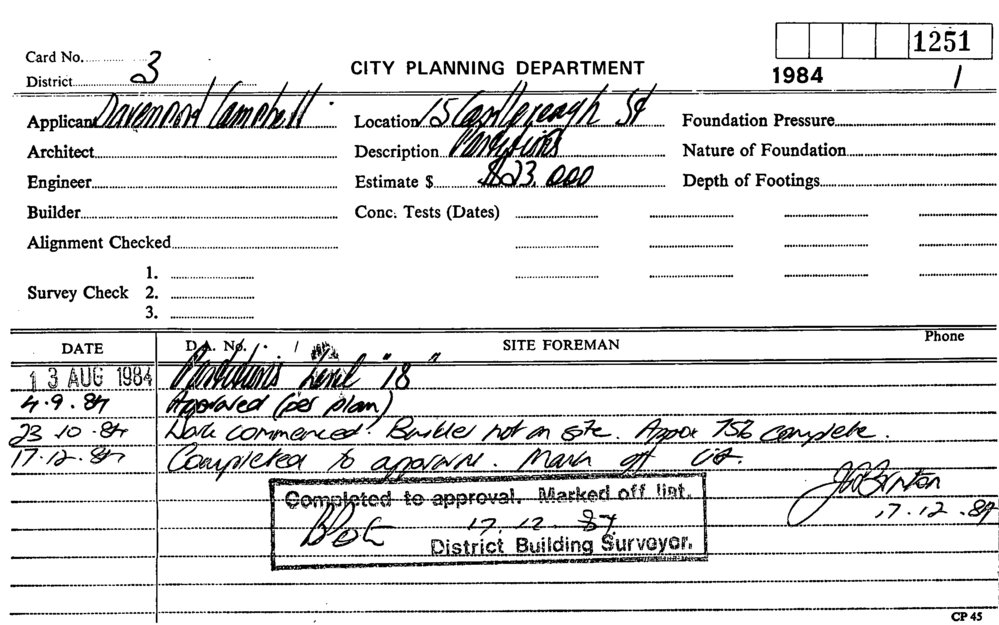 1251
Card No. 3
District
CITY PLANNING DEPARTMENT
1984 1
Applicant Davenport Campbell
Location 15 Castlereagh St
Foundation Pressure
Architect
Description Partitions
Nature of Foundation
Engineer
Estimate $ $23,000
Depth of Footings
Builder
Conc. Tests (Dates)
Alignment Checked
1.
Survey Check 2.
3.
DATE D.A. No. SITE FOREMAN Phone
13 AUG 1984 Partitions Level "18"
4.9.84 Approved (per plan)
23.10.84 Work commenced. Builder not on site. Approx 75% complete.
17.12.84 Completed to approval. Mark off list.
Completed to approval. Marked off list.
17.12.84
17.12.84
District Building Surveyor.
CP 45